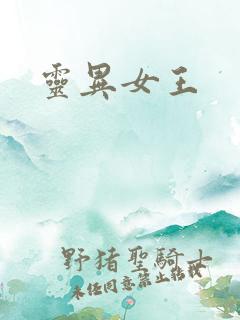 靈異女王
野猪聖騎士
未任同意禁止轉載